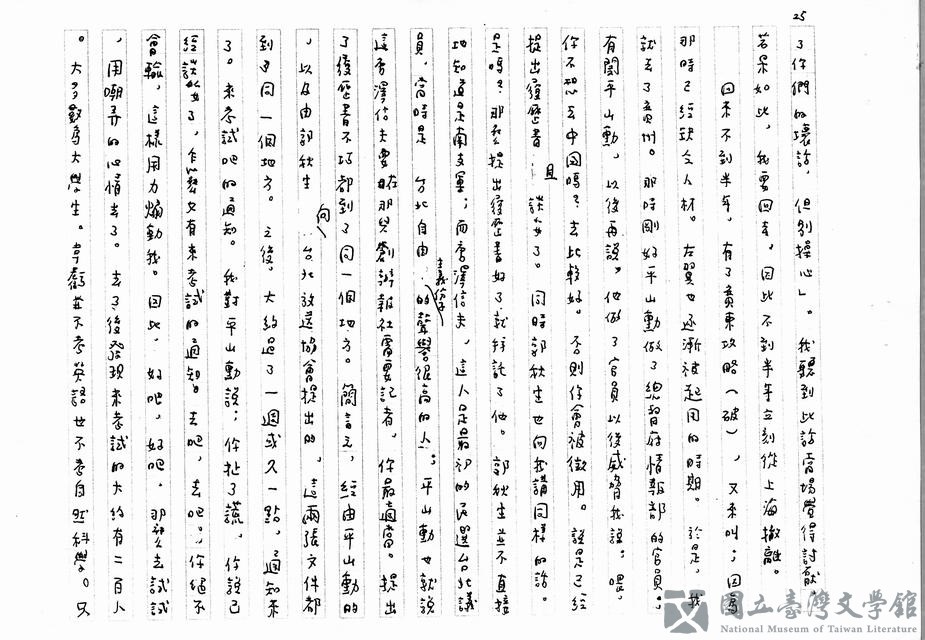 25
了你們的壞話，但別操心」。我聽到此話當場覺得討厭，
若果如此，我要回去，因此不到半年立刻從上海撤離。
回來不到半年，有了廣東攻略（破），又來叫；因為
那時已經缺乏人材。左翼也逐漸被起用的時期。於是，我
就去了廣州。那時剛好平山勳做了總督府情報部的官員。
有關平山勳，以後再說。他做了官員以後威脅我說。喂，
你不想去中國嗎？去比較好。否則你會被徵用。說是已經
提出履歷書，且談好了。同時郭秋生也向我講同樣的話。
是嗎？那就提出履歷書好了就拜託了他。郭秋生並不直接
地知道是南支軍；而唐澤信夫，這人是最初的民選台北議
員，當時是 台北自由主義份子的聲譽很高的人；平山勳也就說
這唐澤信夫要在那兒創辦報社需要記者，你最適當。提出
了履歷書不巧都到了同一個地方。簡言之，經由平山勳的
，以及由郭秋生向台北放送協會提出的。這兩張文件都
到了同一個地方。之後，大約過了一週或久一點，通知來
了。來考試吧的通知。我對平山勳說；你扯了謊，你說已
經談好了，怎麼又有來考試的通知。去吧，去吧。你絕不
會輸，這樣用力煽動我。因此，好吧，好吧。那麼去試試
，用嘲弄的心情去了。去了後發現來考試的大約有二百人
。大多數為大學生。筆試並不考英語也不考自然科學。只
國立臺灣文學館
National Museum of Taiwan Literature